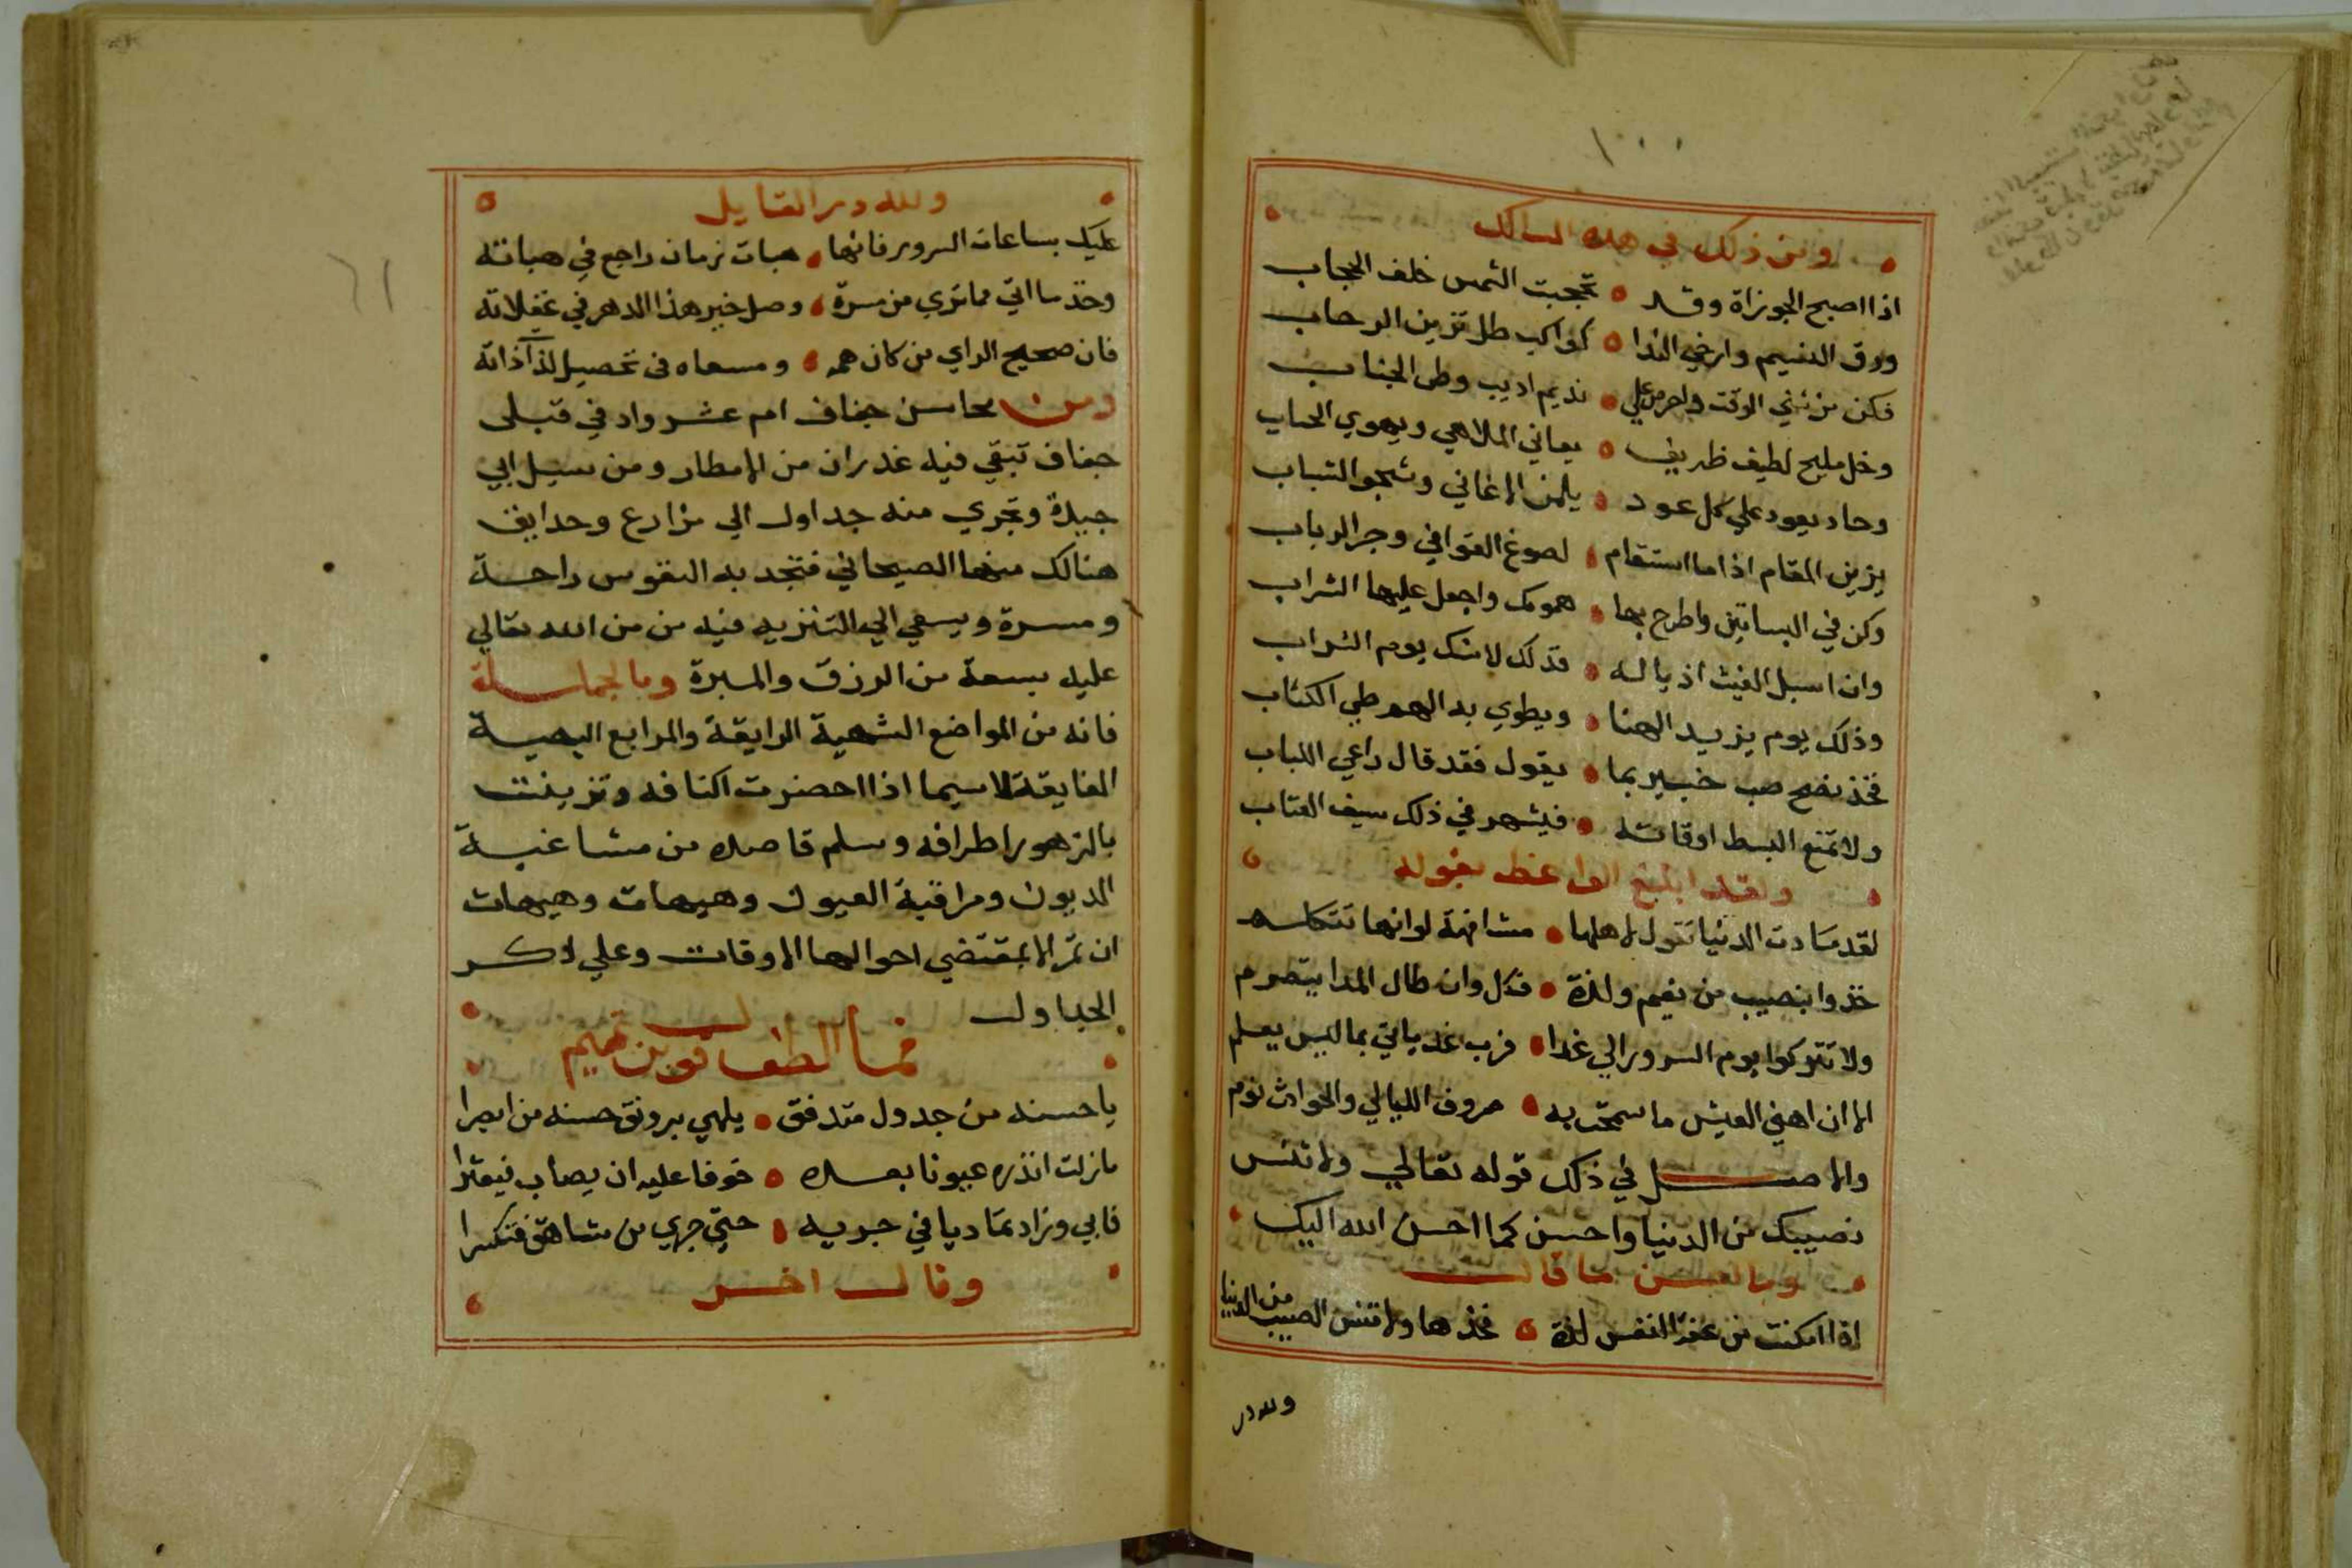 ومن ذلك في هذه المسالك
اذا اصبح الجو نزاة وقد • تحجبت الشمس خلف الحجاب
ورق النسيم وارخي الندا • كواكب طل تزين الرحاب
فكن من بني الوقت واحرص علي • نديم اديب وطي الجناب
وخل مليح لطيف ظريف • يعاني الملاهي ويهوي الحباب
وحاد يعود علي كل عود • بلحن الاغاني وشجو الشباب
يزين المقام اذا ما استقام • لصوغ القوافي وجر الرباب
وكن في البساتين واطرح بها • همومك واجعل عليها التراب
وان اسبل الغيث اذياله • فذلك لاشك يوم الشراب
وذلك يوم يزيد الهنا • ويطوي به الهم طي الكتاب
فخذ نصح صب خبير بما • يقول فقد قال راعي اللباب
ولا تمنع البسط اوقاته • فيشهر في ذلك سيف العتاب
ولقد ابلغ الواعظ بقوله
لقد نادت الدنيا تقول لاهلها • مشافهة لو انها تتكلم
خذوا بنصيب من نعيم ولذة • فكل وان طال المدا يتصرم
ولا تتركوا يوم السرور الي غدا • فرب غد ياتي بما ليس يعلم
الا ان اهني العيش ما سمحت به • صروف الليالي والحوادث نوم
والاصل في ذلك قوله تعالي ولا تنس
نصيبك من الدنيا واحسن كما احسن الله اليك
وما احسن ما قال
اذا امكنت من عفة النفس لذة • فخذها ولا تنس النصيب من الدنيا
ولله در
١٠٠٠
ولله در القايل
عليك بساعات السرور فانها • هبات زمان راجع في هباته
وخذ ما اتي مما تري من مسرة • وصل خير هذا الدهر في غفلاته
فان صحيح الراي من كان همه • ومسعاه في تحصيل لذاذاته
ومن محاسن جفاف ام عشر واد في قبلي
جفاف تبقي فيه غدران من الامطار ومن سيل ابي
جيدة وتجري منه جداول الي مزارع وحدايق
هنالك منها الصيحاني فتجد به النفوس راحة
ومسرة ويسعي الي التنزيه فيه من من الله تعالي
عليه بسعة من الرزق والمبرة وبالجملة
فانه من المواضع الشهية الرايقة والمرابع البهية
الفايقة لاسيما اذا احضرت اكنافه وتزينت
بالزهور اطرافه وسلم قاصده من مشاغبة
الديون ومراقبة العيون وهيهات وهيهات
ان تمر الا بمقتضي احوالها الاوقات وعلي ذكر
الجداول
فما الطف قول بن تميم
يا حسنه من جدول متدفق • يلهي برونق حسنه من ابصرا
مازلت انذره عيونا بعده • خوفا عليه ان يصاب فيعثرا
فابي وزاد تماديا في جريه • حتي جري من شاهق فتكسرا
وقال اخر